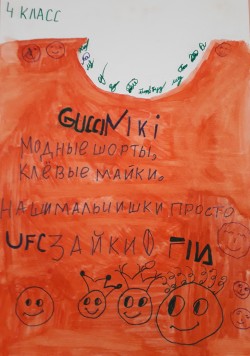 4 КЛАСС
GUCCINIKi
МОДНЫЕ ШОРТЫ,
КЛЁВЫЕ МАЙКИ.
НАШИ МАЛЬЧИШКИ ПРОСТО
UFC ЗАЙКИ